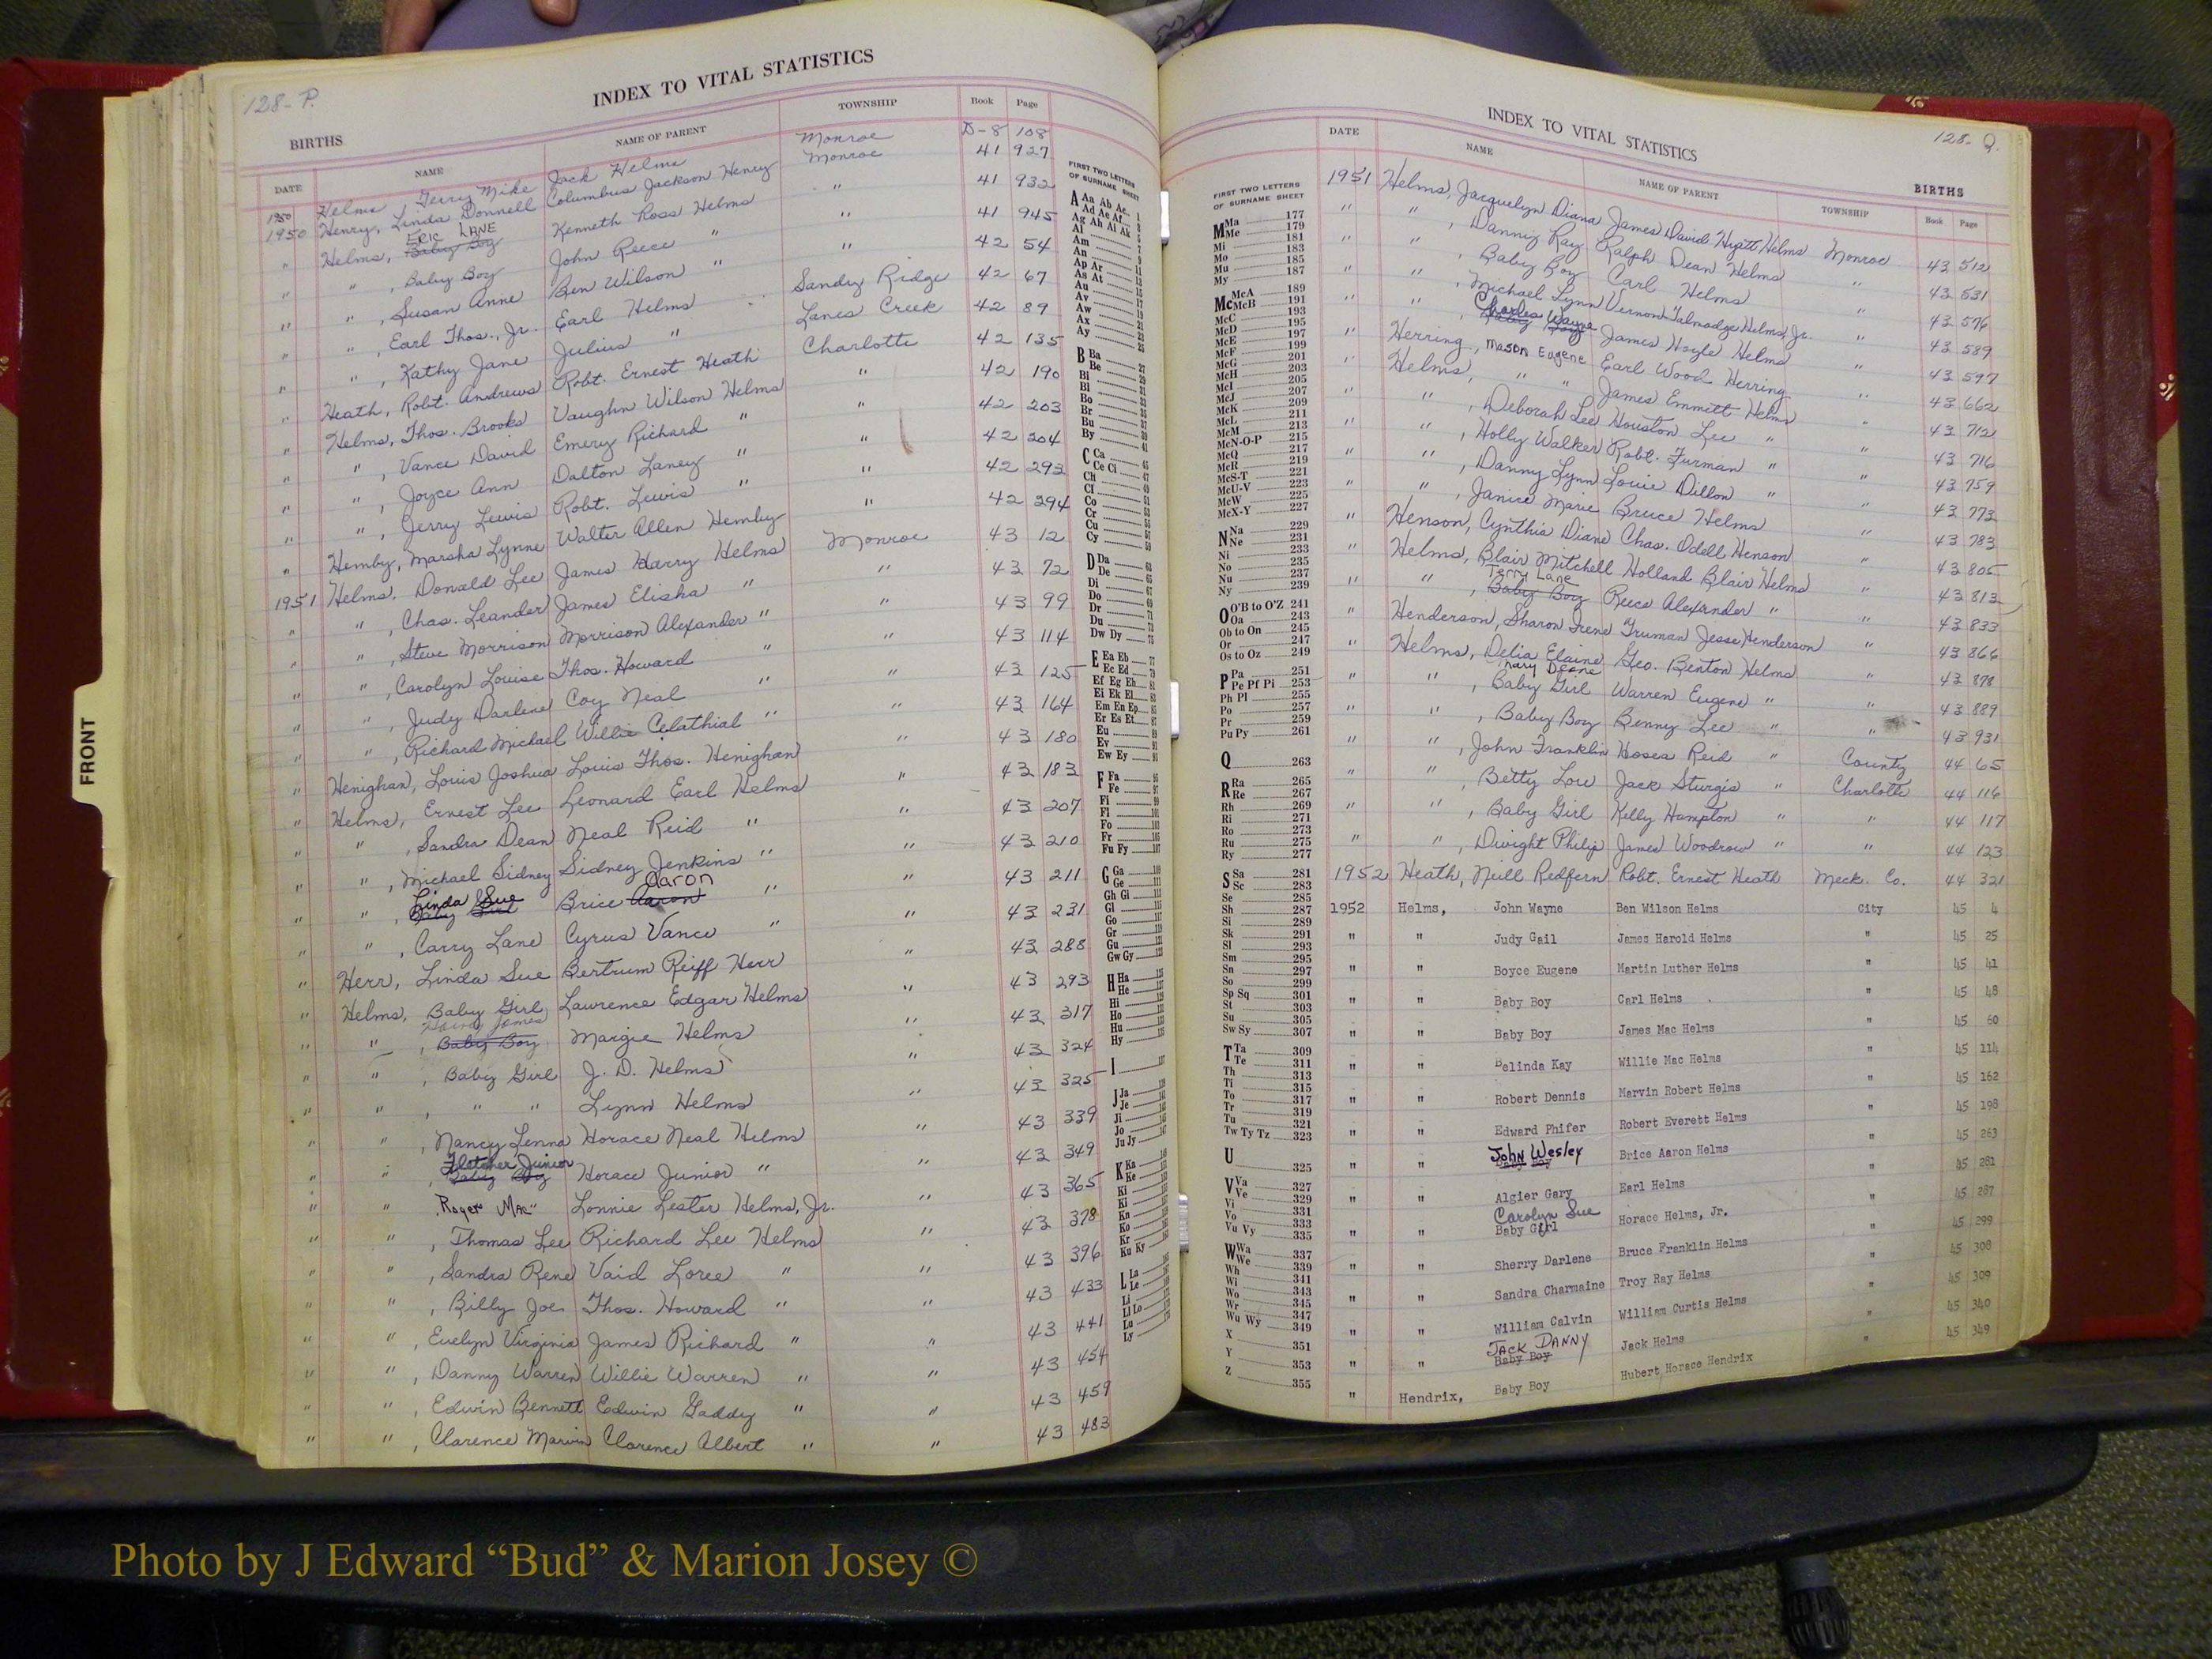 128-P.
INDEX TO VITAL STATISTICS
BIRTHS
DATE NAME NAME OF PARENT TOWNSHIP Book Page
1950 Helms, Jerry Mike Jack Helms Monroe D-8 108
1950 Henry, Linda Donnell Columbus Jackson Henry Monroe 41 927
" Helms, ERIC LANE Baby Boy Kenneth Ross Helms " 41 932
" " , Baby Boy John Reece " " 41 945
" " , Susan Anne Ben Wilson " " 42 54
" " , Earl Thos., Jr. Earl Helms Sandy Ridge 42 67
" " , Kathy Jane Julius " Lanes Creek 42 89
" Heath, Robt. Andrews Robt. Ernest Heath Charlotte 42 135
" Helms, Thos. Brooks Vaughn Wilson Helms " 42 190
" " , Vance David Emery Richard " " 42 203
" " , Joyce Ann Dalton Laney " " 42 204
" " , Jerry Lewis Robt. Lewis " " 42 293
" Hemby, Marsha Lynne Walter Allen Hemby " 42 294
1951 Helms, Donald Lee James Harry Helms Monroe 43 12
" " , Chas. Leander James Elisha " " 43 72
" " , Steve Morrison Morrison Alexander " " 43 99
" " , Carolyn Louise Thos. Howard " " 43 114
" " , Judy Darlene Coy Neal " " 43 125
" " , Richard Michael Willie Celathial " " 43 164
" Henighan, Louis Joshua Louis Thos. Henighan " 43 180
" Helms, Ernest Lee Leonard Earl Helms " 43 183
" " , Sandra Dean Neal Reid " " 43 207
" " , Michael Sidney Sidney Jenkins " " 43 210
" " , Linda Sue Baby Girl Brice Aaron Aaron " " 43 211
" " , Carry Lane Cyrus Vance " " 43 231
" Herr, Linda Sue Bertrum Reiff Herr " 43 288
" Helms, Baby Girl Lawrence Edgar Helms " 43 293
" " , James Baby Boy Margie Helms " 43 317
" " , Baby Girl J. D. Helms " 43 324
" " , " " Lynn Helms " 43 325
" " , Nancy Lenna Horace Neal Helms " 43 339
" " , Fletcher Junior Baby Boy Horace Junior " " 43 349
" " , Roger Mac Lonnie Lester Helms, Jr. " 43 365
" " , Thomas Lee Richard Lee Helms " 43 378
" " , Sandra Rene Vaid Loree " " 43 396
" " , Billy Joe Thos. Howard " " 43 433
" " , Evelyn Virginia James Richard " " 43 441
" " , Danny Warren Willie Warren " " 43 454
" " , Edwin Bennett Edwin Gaddy " " 43 459
" " , Clarence Marvin Clarence Albert " " 43 483
FIRST TWO LETTERS
OF SURNAME SHEET
A Aa Ab Ac 1
Ad Ae Af 3
Ag Ah Ai Ak 5
Al 7
Am 9
An
Ap Ar 11
As At 13
Au 15
Av 17
Aw 19
Ax 21
Ay 23
B Ba 27
Be
Bi
Bl
Bo
Br
Bu
By 41
C Ca 45
Ce Ci
Ch
Cl
Co
Cr
Cu
Cy
D Da
De
Di
Do
Dr
Du
Dw Dy
E Ea Eb 77
Ec Ed 79
Ef Eg Eh 81
Ei Ek El 83
Em En Ep 85
Er Es Et 87
Eu 89
Ev 91
Ew Ey 93
F Fa 95
Fe 97
Fi
Fl
Fo
Fr
Fu Fy 107
G Ga
Ge
Gh Gi
Gl
Go
Gr
Gu
Gw Gy
H Ha
He
Hi
Ho
Hu
Hy
I
J Ja
Je
Ji
Jo
Ju Jy
K Ka
Ke
Ki
Kl
Kn
Ko
Kr
Ku Ky
L La
Le
Li
Ll Lo
Lu
Ly
128-Q.
INDEX TO VITAL STATISTICS
BIRTHS
DATE NAME NAME OF PARENT TOWNSHIP Book Page
1951 Helms, Jacquelyn Diana James David Hyatt Helms Monroe 43 512
" " , Danny Ray Ralph Dean Helms " 43 531
" " , Baby Boy Carl Helms " 43 576
" " , Michael Lynn Vernon Talmadge Helms, Jr. " 43 589
" " , Charles Wayne Baby Boy James Hoyle Helms " 43 597
" Herring, Mason Eugene Earl Wood Herring " 43 662
" Helms, " " James Emmitt Helms " 43 712
" " , Deborah Lee Houston Lee " " 43 716
" " , Holly Walker Robt. Furman " " 43 759
" " , Danny Lynn Louie Dillon " " 43 773
" " , Janice Marie Bruce Helms " 43 783
" Henson, Cynthia Diane Chas. Odell Henson " 43 805
" Helms, Blair Mitchell Holland Blair Helms " 43 813
" " , Terry Lane Baby Boy Reece Alexander " " 43 833
" Henderson, Sharon Irene Truman Jesse Henderson " 43 866
" Helms, Delia Elaine Geo. Benton Helms " 43 878
" " , Mary Deane Baby Girl Warren Eugene " " 43 889
" " , Baby Boy Benny Lee " " 43 931
" " , John Franklin Hosea Reid " County 44 65
" " , Betty Lou Jack Sturgis " Charlotte 44 116
" " , Baby Girl Kelly Hampton " " 44 117
" " , Dwight Philip James Woodrow " " 44 123
1952 Heath, Neill Redfern Robt. Ernest Heath Meck. Co. 44 321
1952 Helms, John Wayne Ben Wilson Helms City 45 4
" " Judy Gail James Harold Helms " 45 25
" " Boyce Eugene Martin Luther Helms " 45 41
" " Baby Boy Carl Helms " 45 48
" " Baby Boy James Mac Helms " 45 60
" " Belinda Kay Willie Mac Helms " 45 114
" " Robert Dennis Marvin Robert Helms " 45 162
" " Edward Phifer Robert Everett Helms " 45 198
" " John Wesley Baby Boy Brice Aaron Helms " 45 263
" " Algier Gary Earl Helms " 45 281
" " Carolyn Sue Baby Girl Horace Helms, Jr. " 45 287
" " Sherry Darlene Bruce Franklin Helms " 45 299
" " Sandra Charmaine Troy Ray Helms " 45 308
" " William Calvin William Curtis Helms " 45 309
" " JACK DANNY Baby Boy Jack Helms " 45 340
" Hendrix, Baby Boy Hubert Horace Hendrix " 45 349
FIRST TWO LETTERS
OF SURNAME SHEET
M Ma 177
Me 179
Mi 181
Mo 183
Mu 185
My 187
Mc McA 189
McB 191
McC 193
McD 195
McE 197
McF 199
McG 201
McH 203
McI 205
McJ 207
McK 209
McL 211
McM 213
McN-O-P 215
McQ 217
McR 219
McS-T 221
McU-V 223
McW 225
McX-Y 227
N Na 229
Ne 231
Ni 233
No 235
Nu 237
Ny 239
O O'B to O'Z 241
Oa 243
Ob to On 245
Or 247
Os to Oz 249
P Pa 251
Pe Pf Pi 253
Ph Pl 255
Po 257
Pr 259
Pu Py 261
Q 263
R Ra 265
Re 267
Rh 269
Ri 271
Ro 273
Ru 275
Ry 277
S Sa 281
Sc 283
Se 285
Sh 287
Si 289
Sk 291
Sl 293
Sm 295
Sn 297
So 299
Sp Sq 301
St 303
Su 305
Sw Sy 307
T Ta 309
Te 311
Th 313
Ti 315
To 317
Tr 319
Tu 321
Tw Ty Tz 323
U 325
V Va 327
Ve 329
Vi 331
Vo 333
Vu Vy 335
W Wa 337
We 339
Wh 341
Wi 343
Wo 345
Wr 347
Wu Wy 349
X 351
Y 353
Z 355
FRONT
Photo by J Edward “Bud” & Marion Josey ©